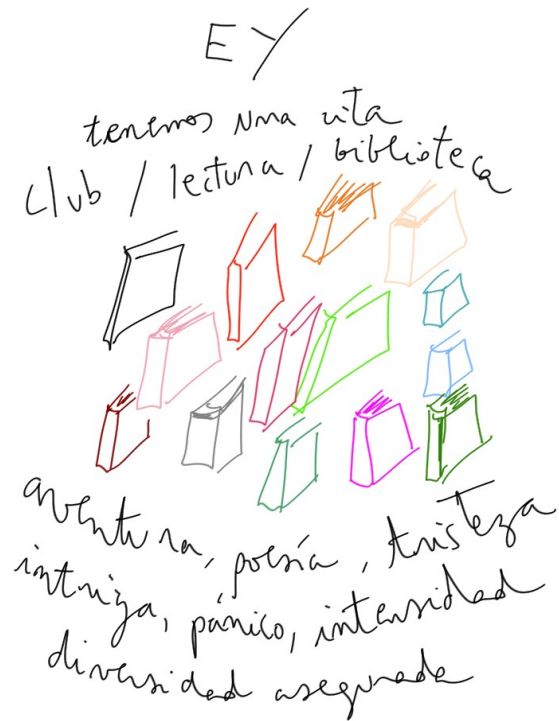 EY
tenemos una cita
club / lectura / biblioteca
aventura, poesía, tristeza
intriga, pánico, intensidad
diversidad asegurada